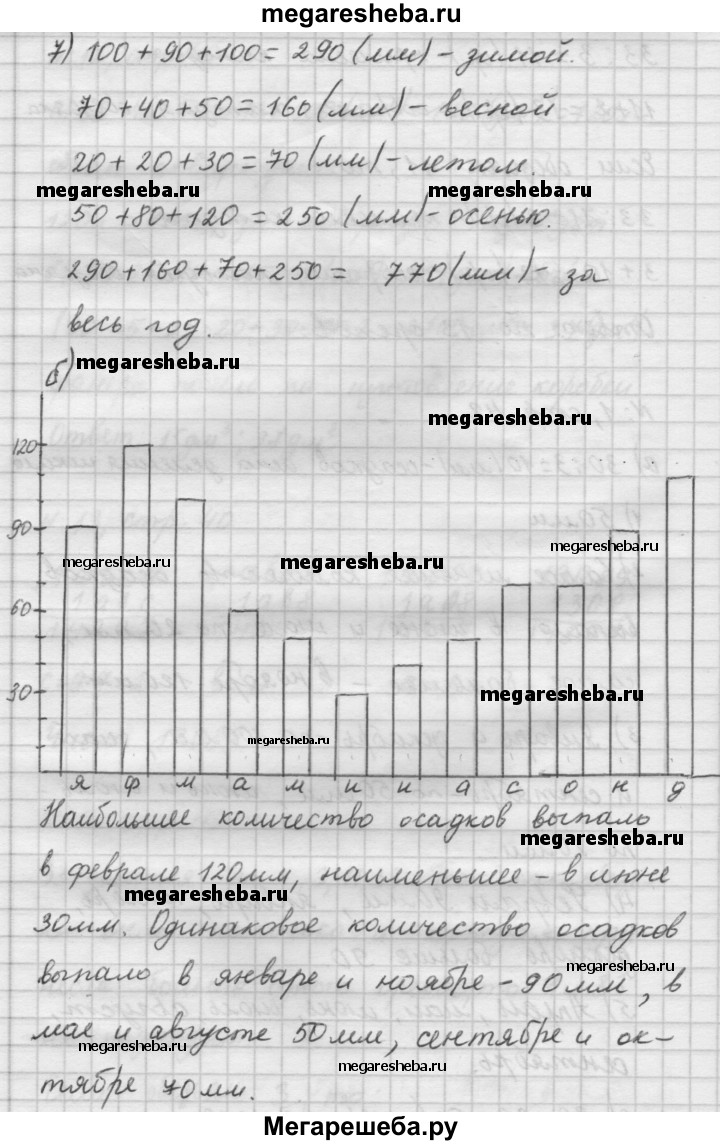 megaresheba.ru
7) 100 + 90 + 100 = 290 (мм) - зимой.
70 + 40 + 50 = 160 (мм) - весной
20 + 20 + 30 = 70 (мм) - летом.
megaresheba.ru megaresheba.ru
50 + 80 + 120 = 250 (мм) - осенью.
290 + 160 + 70 + 250 = 770 (мм) - за
весь год.
б) megaresheba.ru
megaresheba.ru
120
90
megaresheba.ru megaresheba.ru megaresheba.ru
60
30 megaresheba.ru
megaresheba.ru
я ф м а м и и а с о н д
Наибольшее количество осадков выпало
megaresheba.ru
в феврале 120мм, наименьшее - в июне
megaresheba.ru
30мм. Одинаковое количество осадков
megaresheba.ru
выпало в январе и ноябре - 90мм, в
мае и августе 50мм, сентябре и ок-
megaresheba.ru megaresheba.ru
тябре 70мм.
Мегарешеба.ру